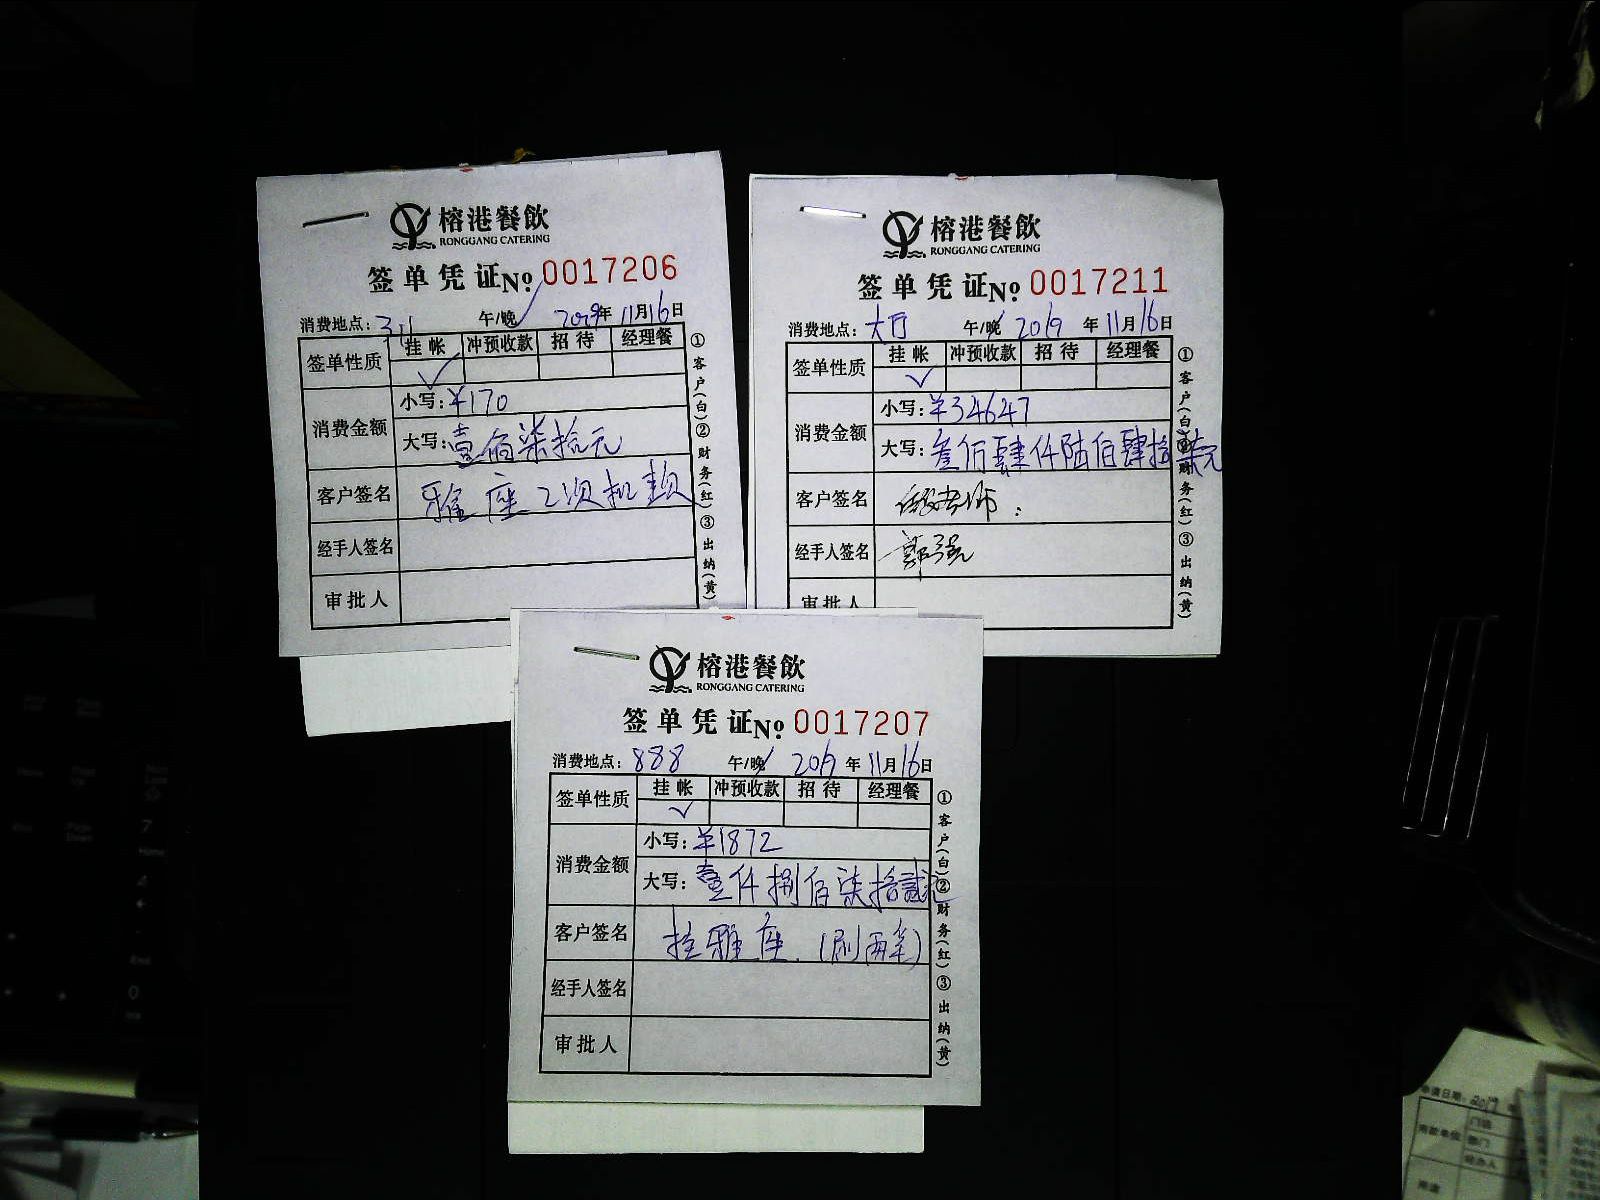 榕港餐飲
RONGGANG CATERING
签单凭证№ 0017206
消费地点: 午/晚 2019年11月16日
签单性质 挂帐 冲预收款 招待 经理餐
消费金额 小写:¥170
大写:壹佰柒拾元
客户签名 雅座2次机麻
经手人签名
审批人
①客户(白)②财务(红)③出纳(黄)
榕港餐飲
RONGGANG CATERING
签单凭证№ 0017211
消费地点:大厅 午/晚 2019年11月16日
签单性质 挂帐 冲预收款 招待 经理餐
消费金额 小写:¥34647
大写:叁佰肆仟陆佰肆拾柒元
客户签名 老师:
经手人签名 郭强
审批人
①客户(白)②财务(红)③出纳(黄)
榕港餐飲
RONGGANG CATERING
签单凭证№ 0017207
消费地点:888 午/晚 2019年11月16日
签单性质 挂帐 冲预收款 招待 经理餐
消费金额 小写:¥1872
大写:壹仟捌佰柒拾贰元
客户签名 挂雅座.
经手人签名
审批人
①客户(白)②财务(红)③出纳(黄)
申请日期:2019